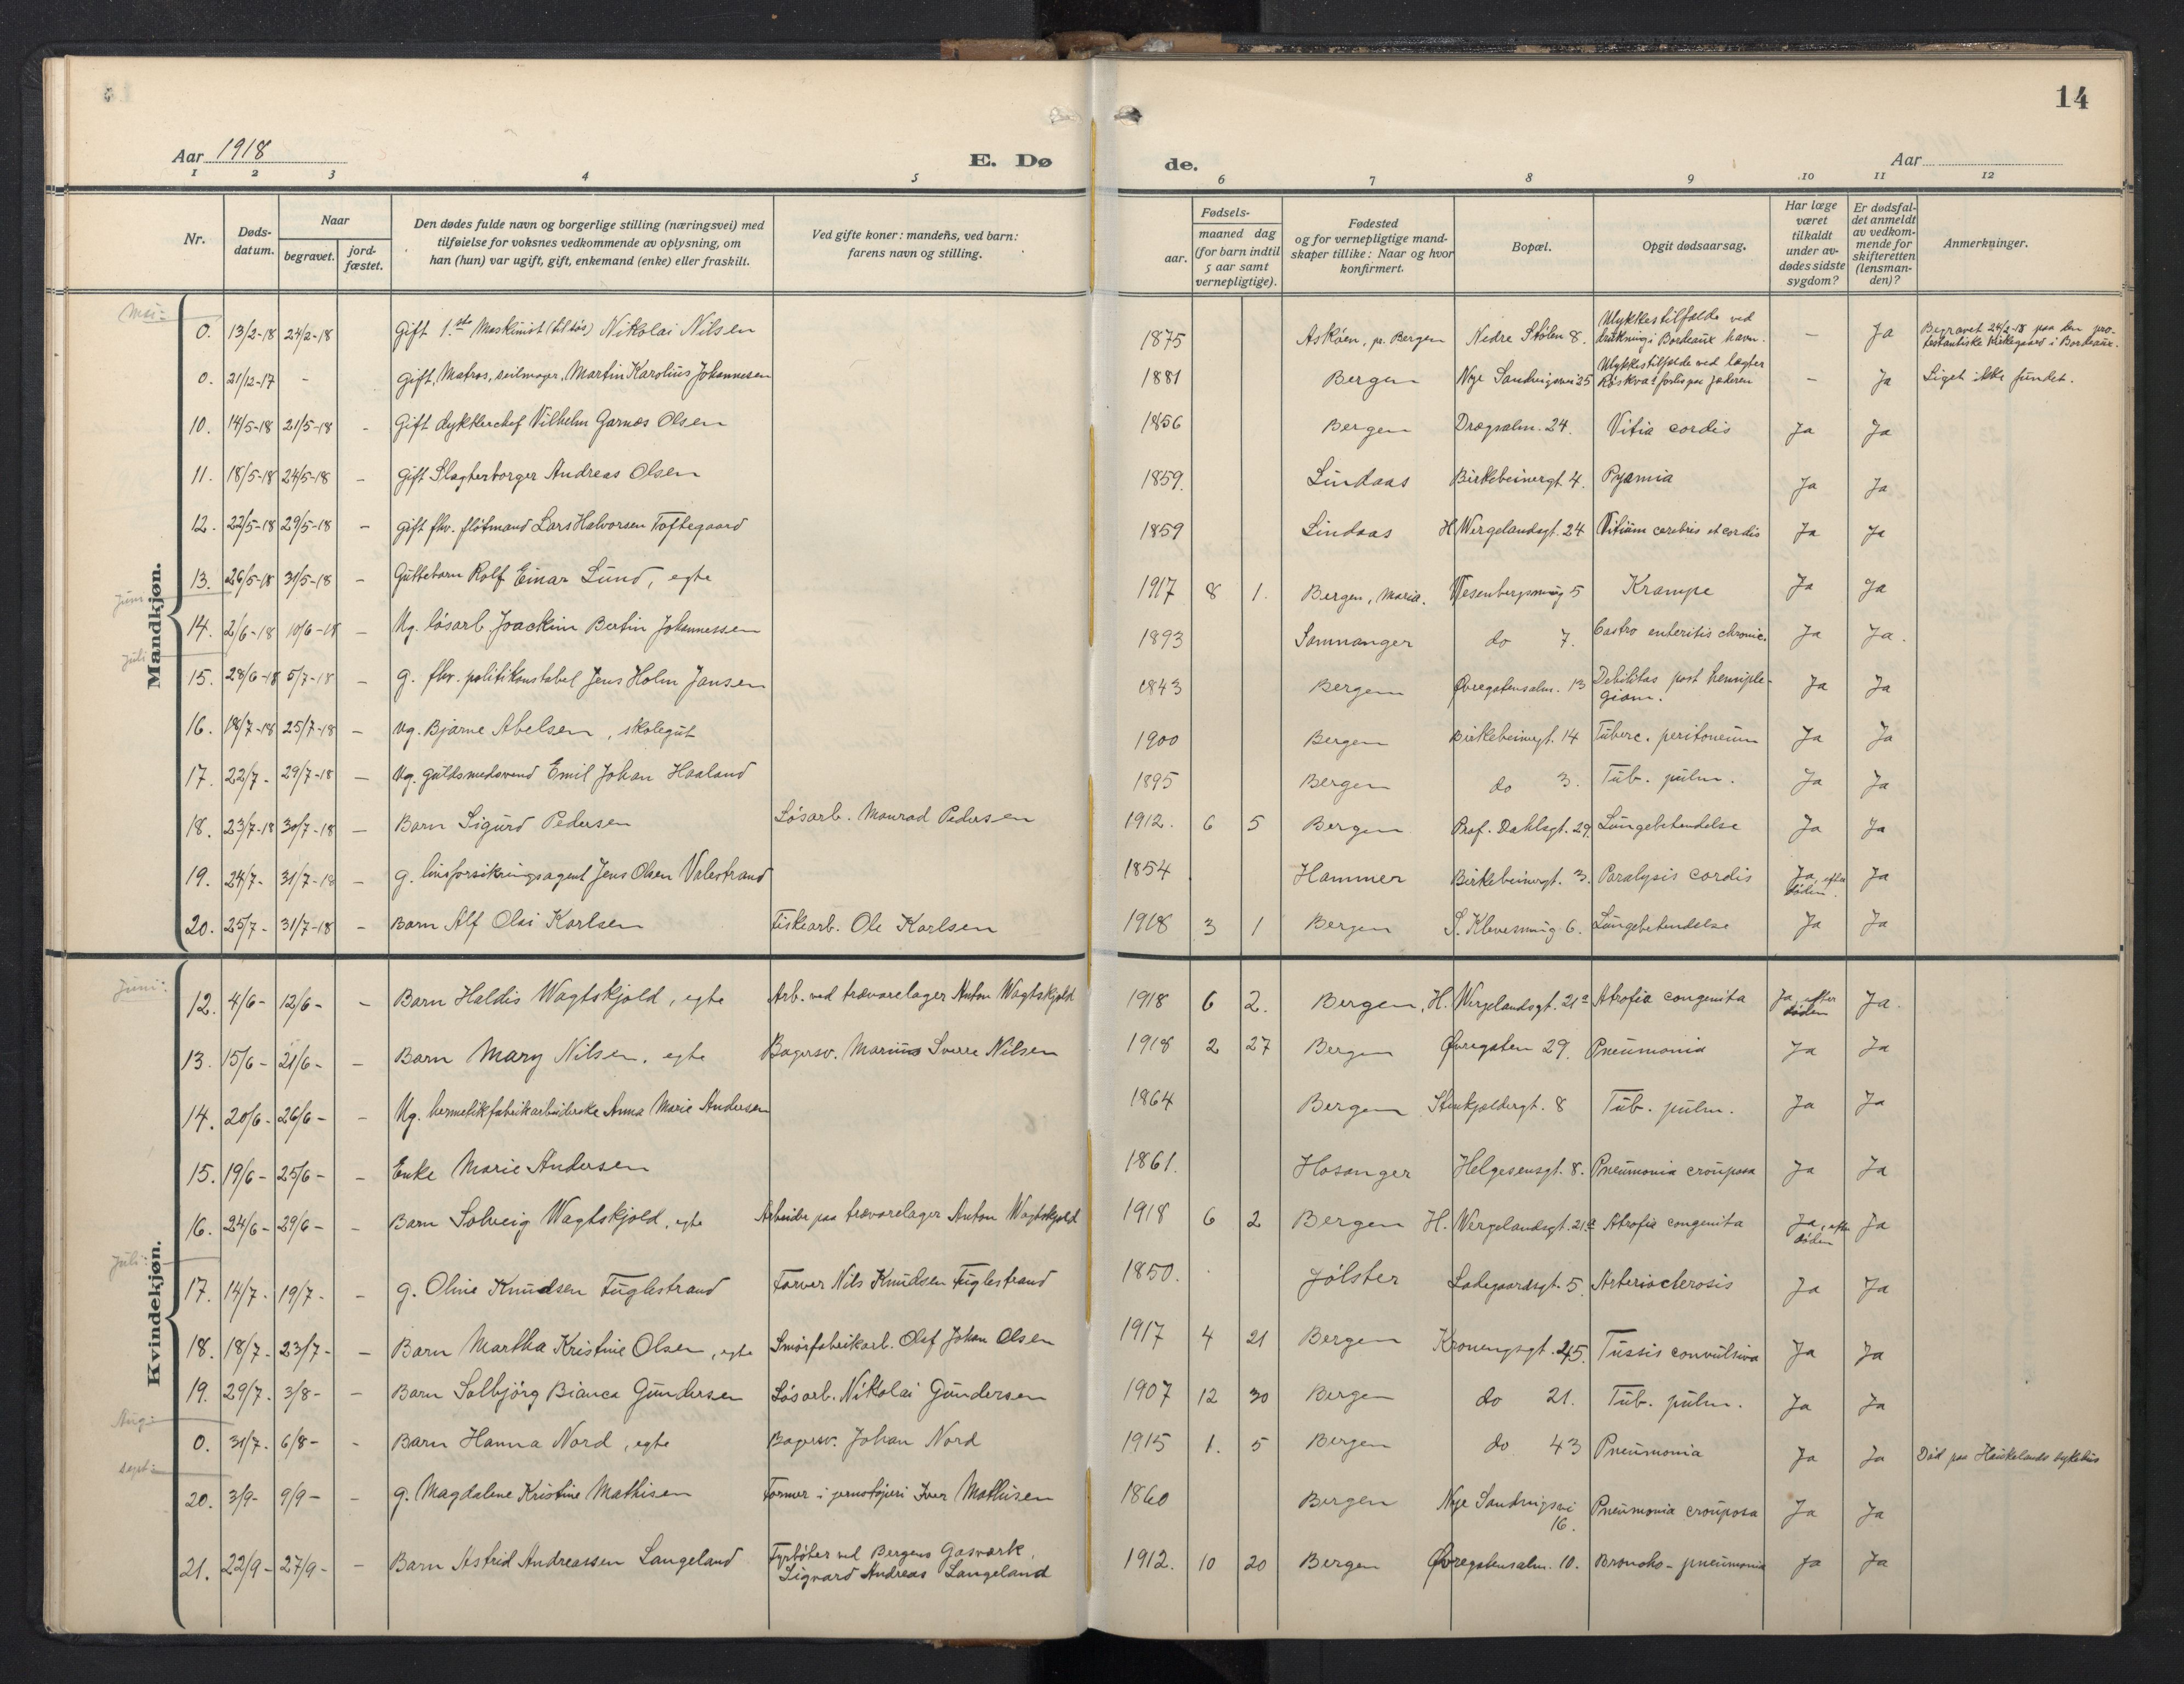 14
Aar 1918 E. Døde. Aar
1 2 3 4 5 6 7 8 9 10 11 12
Nr. Døds-datum. Naar begravet. jord-fæstet. Den dødes fulde navn og borgerlige stilling (næringsvei) med tilføielse for voksnes vedkommende av oplysning, om han (hun) var ugift, gift, enkemand (enke) eller fraskilt. Ved gifte koner: mandens, ved barn: farens navn og stilling. Fødsels- aar. maaned dag (for barn indtil 5 aar samt vernepligtige). Fødested og for vernepligtige mandskaper tillike: Naar og hvor konfirmert. Bopæl. Opgit dødsaarsag. Har læge været tilkaldt under avdødes sidste sygdom? Er dødsfaldet anmeldt av vedkommende for skifteretten (lensmanden)? Anmerkninger.
Mandkjøn.
Mai:
0. 13/2-18 24/2-18 Gift 1.ste Maskinist (til søs) Nikolai Nilsen 1875 Askøen, pr. Bergen Nedre Stølen 8. Ulykkestilfælde ved drukning i Bordeaux havn. - Ja Begravet 24/2-18 paa den protestantiske kirkegaard i Bordeaux.
0. 21/12-17 - Gift, Matros, seilmager, Martin Karolius Johannesen 1881 Bergen Nye Sandvigsvei 25 Ulykkestilfælde ved lægter forlis paa Jæderen - Ja Liget ikke fundet.
10. 14/5-18 21/5-18 - Gift dykkerchef Vilhelm Garnæs Olsen 1856 Bergen Drægsalm. 24. Vitia cordis Ja Ja
11. 18/5-18 24/5-18 - Gift Slagterborger Andreas Olsen 1859. Lindaas Birkebeinergt. 4. Pyæmia Ja Ja
12. 22/5-18 29/5-18 - Gift fhv. fløtmand Lars Halvorsen Toftegaard 1859 Lindaas H. Wergelandsgt. 24 Vitium cerebris et cordis Ja Ja
13. 26/5-18 31/5-18 - Guttebarn Rolf Einar Lund, egte 1917 8 1. Bergen, Maria. Wesenbergsmug 5 Krampe Ja Ja
Juni
14. 2/6-18 10/6-18 - Ug. løsarb. Joackim Bertin Johannessen 1893 Samnanger do 7. Gastro enteritis chronic. Ja Ja.
Juli
15. 28/6-18 5/7-18 - g. fhv. politikonstabel Jens Holm Jansen 1843 Bergen Øvregatensalm. 13 Debilitas post hemiplegiam. Ja Ja
16. 18/7-18 25/7-18 - Ug. Bjarne Abelsen, skolegut 1900 Bergen Birkebeinergt. 14 Tuberc. peritoneum Ja Ja
17. 22/7- 29/7-18 - Ug. guldsmedsvend Emil Johan Haaland 1895 Bergen do 3. Tub. pulm. Ja Ja
18. 23/7-18 30/7-18 - Barn Sigurd Pedersen Løsarb. Monrad Pedersen 1912. 6 5 Bergen Prof. Dahlsgt. 29. Lungebetendelse Ja Ja
19. 24/7- 31/7-18 - g. livsforsikringsagent Jens Olsen Valestrand 1854 Hammer Birkebeinergt. 3. Paralysis cordis Ja, efter døden. Ja
20. 25/7- 31/7-18 - Barn Alf Olai Karlsen Fiskearb. Ole Karlsen 1918 3 1 Bergen S. Klevesmug 6. Lungebetendelse Ja Ja
Kvindekjøn.
Juni:
12. 4/6- 12/6- - Barn Haldis Wagtskjold, egte Arb. ved trævarelager Anton Wagtskjold 1918 6 2. Bergen, H. Wergelandsgt. 21a Atrofia congenita Ja, efter døden Ja.
13. 15/6- 21/6- - Barn Mary Nilsen, egte Bagersv. Marius Sverre Nilsen 1918 2 27 Bergen Øvregaten 29. Pneumonia Ja Ja
14. 20/6- 26/6- - Ug. hermetikfabrikarbeiderske Anna Marie Andersen 1864 Bergen Stenkjeldergt. 8 Tub. pulm. Ja Ja
15. 19/6- 25/6- - Enke Marie Andersen 1861. Hosanger Helgesensgt. 8. Pneumonia crouposa Ja Ja
16. 24/6- 29/6- - Barn Solveig Wagtskjold, egte Arbeider paa trævarelager Anton Wagtskjold 1918 6 2 Bergen H. Wergelandsgt. 21a Atrofia congenita Ja, efter døden Ja
Juli:
17. 14/7- 19/7- - g. Oline Knudsen Fuglestrand Farver Nils Knudsen Fuglestrand 1850. Jølster Ladegaardsgt. 5. Arterioclerosis Ja Ja
18. 18/7- 23/7- - Barn Martha Kristine Olsen, egte Smørfabrikarb. Olaf Johan Olsen 1917 4 21 Bergen Kronengsgt. 45. Tussis convulsiva Ja Ja
19. 29/7. 3/8- - Barn Solbjörg Bianca Gundersen Løsarb. Nikolai Gundersen 1907 12 30 Bergen do 21. Tub. pulm. Ja Ja
Aug:
0. 31/7. 6/8- - Barn Hanna Nord, egte Bagersv. Johan Nord 1915 1. 5 Bergen do 43 Pneumonia Ja Ja Død paa Haukelands sykehus
Sept:
20. 3/9- 9/9- - g. Magdalene Kristine Mathisen Former i jernstøperi Iver Mathisen 1860 Bergen Nye Sandvigsvei 16. Pneumonia crouposa Ja Ja
21. 22/9- 27/9- - Barn Astrid Andreassen Langeland Fyrbøter ved Bergens Gasværk, Sigvard Andreas Langeland 1912. 10 20 Bergen Øvregatensalm. 10. Broncho-pneumonia Ja Ja